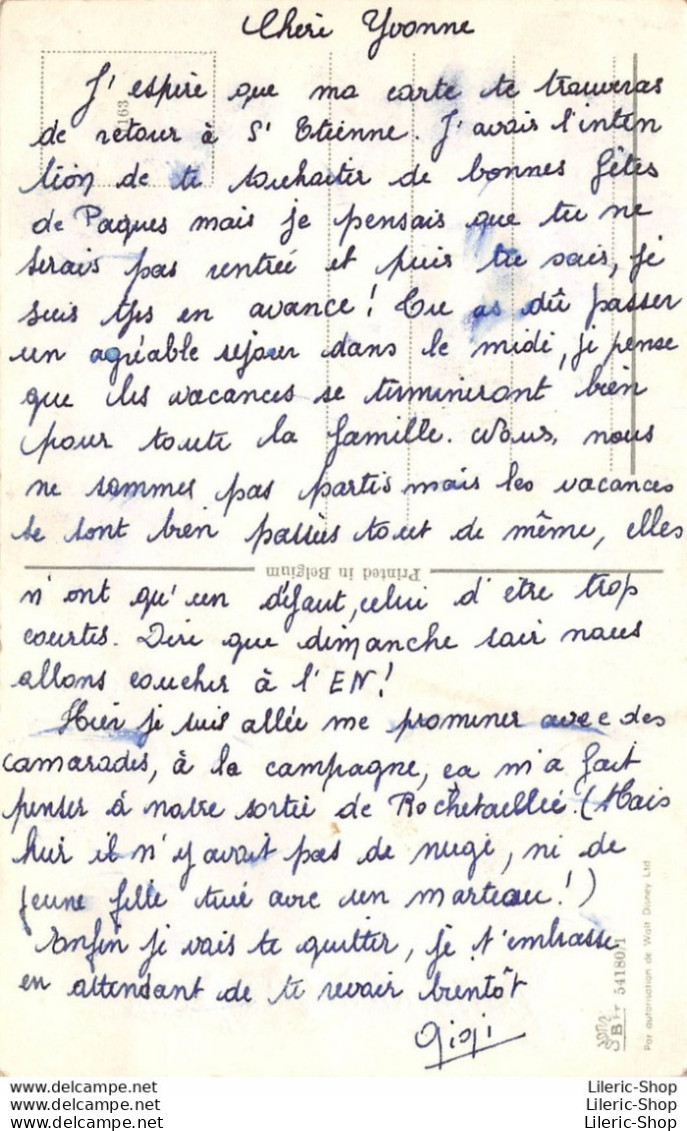 Chéri Yvonne
J'espère que ma carte te trouveras
de retour à St Etienne. J'avais l'inten
tion de te souhaiter de bonnes fêtes
de Paques mais je pensais que tu ne
serais pas rentrée et puis tu sais, je
suis très en avance! Tu as dû passer
un agréable séjour dans le midi, je pense
que les vacances se termineront bien
pour toute la famille. Nous, nous
ne sommes pas partis mais les vacances
se sont bien passées tout de même, elles
Printed in Belgium
n'ont qu'un défaut, celui d'être trop
courtes. Dire que dimanche soir nous
allons coucher à l'EN!
Hier je suis allée me promener avec des
camarades, à la campagne, ça m'a fait
penser à notre sortie de Rochetaillée. (Mais
hier il n'y avait pas de neige, ni de
jeune fille tuée avec un marteau!)
Enfin je vais te quitter, je t'embrasse
en attendant de te revoir bientôt
Gigi
163
SB 54180/1
Par autorisation de Walt Disney Ltd
Lileric-Shop
Lileric-Shop
Lileric-Shop